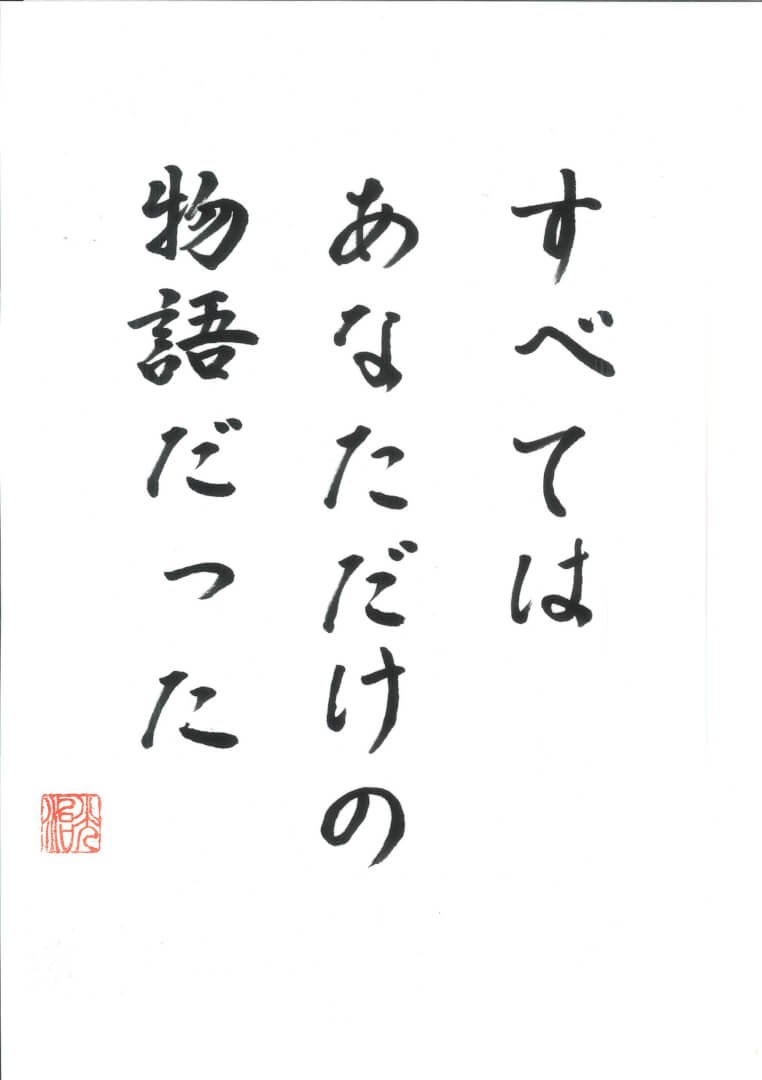 すべては
あなただけの
物語だった